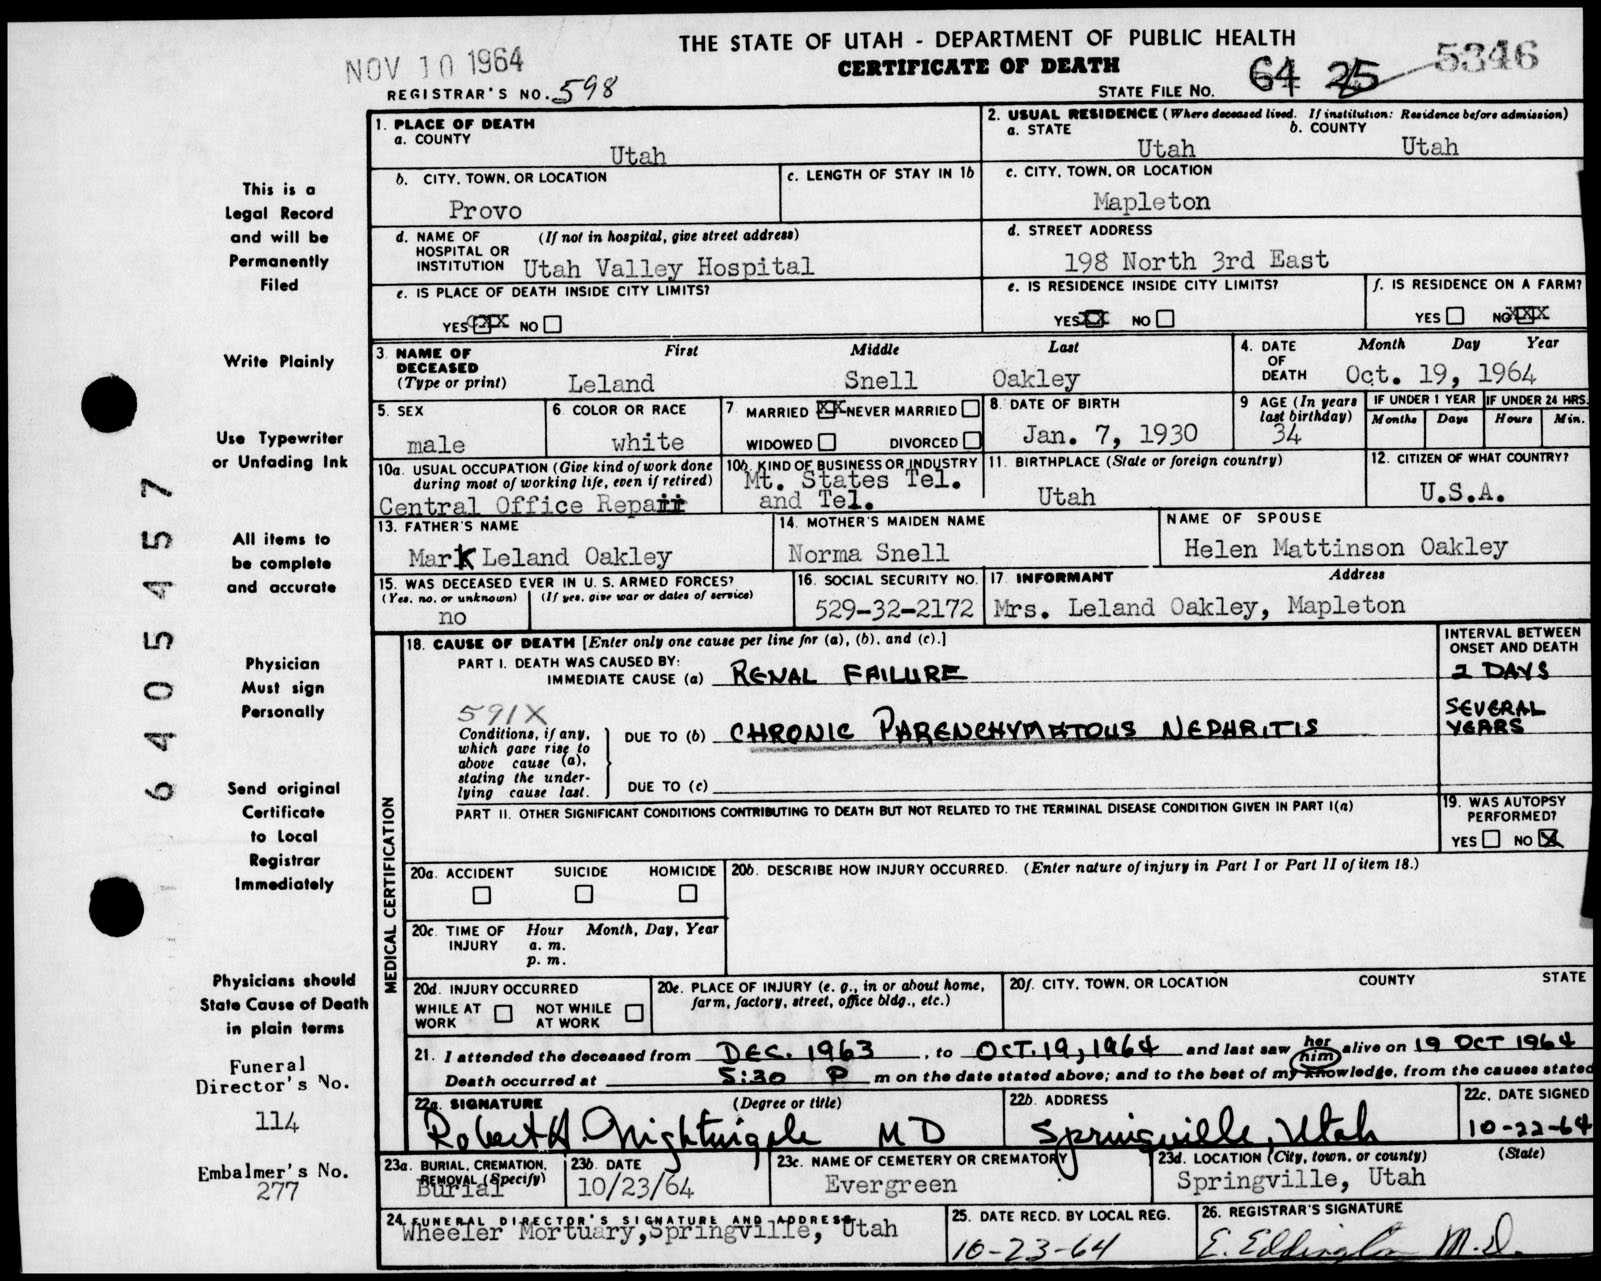 THE STATE OF UTAH - DEPARTMENT OF PUBLIC HEALTH
NOV 10 1964
CERTIFICATE OF DEATH
64 25 5346
REGISTRAR'S NO. 598
STATE FILE NO.
1. PLACE OF DEATH
a. COUNTY
Utah
2. USUAL RESIDENCE (Where deceased lived. If institution: Residence before admission)
a. STATE b. COUNTY
Utah Utah
b. CITY, TOWN, OR LOCATION
Provo
c. LENGTH OF STAY IN 1b
c. CITY, TOWN, OR LOCATION
Mapleton
d. NAME OF (If not in hospital, give street address)
HOSPITAL OR
INSTITUTION Utah Valley Hospital
d. STREET ADDRESS
198 North 3rd East
e. IS PLACE OF DEATH INSIDE CITY LIMITS?
YES NO
e. IS RESIDENCE INSIDE CITY LIMITS?
YES XX NO
f. IS RESIDENCE ON A FARM?
YES NO XXX
3. NAME OF First Middle Last
DECEASED
(Type or print) Leland Snell Oakley
4. DATE Month Day Year
OF
DEATH Oct. 19, 1964
5. SEX
male
6. COLOR OR RACE
white
7. MARRIED XX NEVER MARRIED
WIDOWED DIVORCED
8. DATE OF BIRTH
Jan. 7, 1930
9 AGE (In years
last birthday)
34
IF UNDER 1 YEAR
Months Days
IF UNDER 24 HRS.
Hours Min.
10a. USUAL OCCUPATION (Give kind of work done
during most of working life, even if retired)
Central Office Repair
10b. KIND OF BUSINESS OR INDUSTRY
Mt. States Tel.
and Tel.
11. BIRTHPLACE (State or foreign country)
Utah
12. CITIZEN OF WHAT COUNTRY?
U.S.A.
13. FATHER'S NAME
Mark Leland Oakley
14. MOTHER'S MAIDEN NAME
Norma Snell
NAME OF SPOUSE
Helen Mattinson Oakley
15. WAS DECEASED EVER IN U. S. ARMED FORCES?
(Yes, no, or unknown) (If yes, give war or dates of service)
no
16. SOCIAL SECURITY NO.
529-32-2172
17. INFORMANT Address
Mrs. Leland Oakley, Mapleton
MEDICAL CERTIFICATION
18. CAUSE OF DEATH [Enter only one cause per line for (a), (b), and (c).]
PART I. DEATH WAS CAUSED BY:
IMMEDIATE CAUSE (a) RENAL FAILURE
INTERVAL BETWEEN
ONSET AND DEATH
2 DAYS
591X
Conditions, if any,
which gave rise to
above cause (a),
stating the under-
lying cause last.
DUE TO (b) CHRONIC PARENCHYMATOUS NEPHRITIS
SEVERAL
YEARS
DUE TO (c)
PART II. OTHER SIGNIFICANT CONDITIONS CONTRIBUTING TO DEATH BUT NOT RELATED TO THE TERMINAL DISEASE CONDITION GIVEN IN PART I(a)
19. WAS AUTOPSY
PERFORMED?
YES NO X
20a. ACCIDENT SUICIDE HOMICIDE
20b. DESCRIBE HOW INJURY OCCURRED. (Enter nature of injury in Part I or Part II of item 18.)
20c. TIME OF Hour Month, Day, Year
INJURY a. m.
p. m.
20d. INJURY OCCURRED
WHILE AT NOT WHILE
WORK AT WORK
20e. PLACE OF INJURY (e. g., in or about home,
farm, factory, street, office bldg., etc.)
20f. CITY, TOWN, OR LOCATION COUNTY STATE
21. I attended the deceased from DEC. 1963, to OCT. 19, 1964 and last saw her him alive on 19 OCT 1964
Death occurred at 5:30 P m on the date stated above; and to the best of my knowledge, from the causes stated
22a. SIGNATURE (Degree or title)
Robert H. Nightingale MD
22b. ADDRESS
Springville, Utah
22c. DATE SIGNED
10-22-64
23a. BURIAL, CREMATION,
REMOVAL (Specify)
Burial
23b. DATE
10/23/64
23c. NAME OF CEMETERY OR CREMATORY
Evergreen
23d. LOCATION (City, town, or county) (State)
Springville, Utah
24. FUNERAL DIRECTOR'S SIGNATURE AND ADDRESS
Wheeler Mortuary, Springville, Utah
25. DATE RECD. BY LOCAL REG.
10-23-64
26. REGISTRAR'S SIGNATURE
E. Eddington M.D.
This is a
Legal Record
and will be
Permanently
Filed
Write Plainly
Use Typewriter
or Unfading Ink
All items to
be complete
and accurate
Physician
Must sign
Personally
Send original
Certificate
to Local
Registrar
Immediately
Physicians should
State Cause of Death
in plain terms
Funeral
Director's No.
114
Embalmer's No.
277
64055457